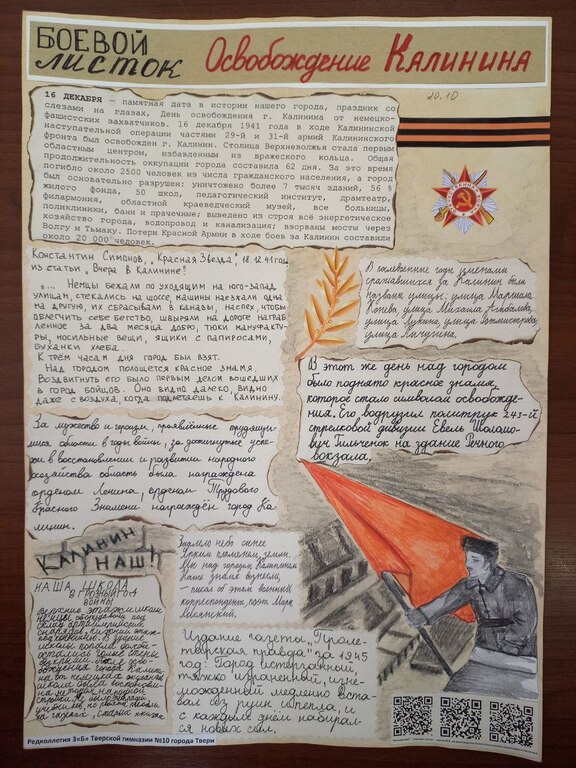 БОЕВОЙ
ЛИСТОК
Освобождение Калинина
20.10
16 ДЕКАБРЯ – памятная дата в истории нашего города, праздник со
слезами на глазах, День освобождения г. Калинина от немецко-
фашистских захватчиков. 16 декабря 1941 года в ходе Калининской
наступательной операции частями 29-й и 31-й армий Калининского
фронта был освобожден г. Калинин. Столица Верхневолжья стала первым
областным центром, избавленным из вражеского кольца. Общая
продолжительность оккупации города составила 62 дня. За это время
погибло около 2500 человек из числа гражданского населения, а город
был основательно разрушен: уничтожено более 7 тысяч зданий, 56 %
жилого фонда, 50 школ, педагогический институт, драмтеатр,
филармония, областной краеведческий музей, все больницы,
поликлиники, бани и прачечные; выведено из строя всё энергетическое
хозяйство города, водопровод и канализация; взорваны мосты через
Волгу и Тьмаку. Потери Красной Армии в ходе боев за Калинин составили
около 20 000 человек.
Константин Симонов, "Красная Звезда", 18.12.41 года
из статьи "Вчера в Калинине"
"... Немцы бежали по уходящим на юго-запад
улицам, стекались на шоссе, машины наезжали одна
на другую, их сбрасывали в канавы, наспех, чтобы
облегчить себе бегство, швыряли на дороге награб-
ленное за два месяца добро, тюки мануфакту-
ры, носильные вещи, ящики с папиросами,
буханки хлеба.
К трём часам дня город был взят.
Над городом полощется красное знамя.
Воздвигнуть его было первым делом вошедших
в город бойцов. Оно видно далеко, видно
даже с воздуха, когда подлетаешь к Калинину.
В послевоенные годы именами
сражавшихся за Калинин были
названы улицы: улица Маршала
Конева, улица
улица Лукина, улица
улица Пичугина.
В этот же день над городом
было поднято красное знамя,
которое стало символом освобожде-
ния. Его водрузил политрук 243-й
стрелковой дивизии Евель
Гильченок на здание Речного
вокзала.
За мужество и героизм, проявленные трудящи-
мися области в годы войны, за достигнутые успе-
хи в восстановлении и развитии народного
хозяйства область была награждена
орденом Ленина, орденом Трудового
Красного Знамени награждён город Ка
линин.
Калинин
наш!
Наша школа
в грозный год
войны
Верхние этажи школы
немцы оборудовали под
склад артиллерийских
снарядов,
В здание
школы
осталось
освобо-
ждения города Калини-
на от немецких оккупантов
школа была восстановле-
на методом народной
стройки. Не было тетрадей
учебников, но ребята писали
на газетах, старых книгах.
небо синее
пламенем земли.
Мы над городом Калинином
Наше знамя вознесли,
- писал об этом военный
корреспондент, поэт Марк
Лисянский.
Издание газеты "Проле-
тарская правда" за 1945
год: "Город истерзанный,
тяжко израненный, изне-
можённый медленно вста-
вал из руин и пепла, и
с каждым днём набирал-
ся новых сил.
Редколлегия 3«Б» Тверской гимназии №10 города Твери